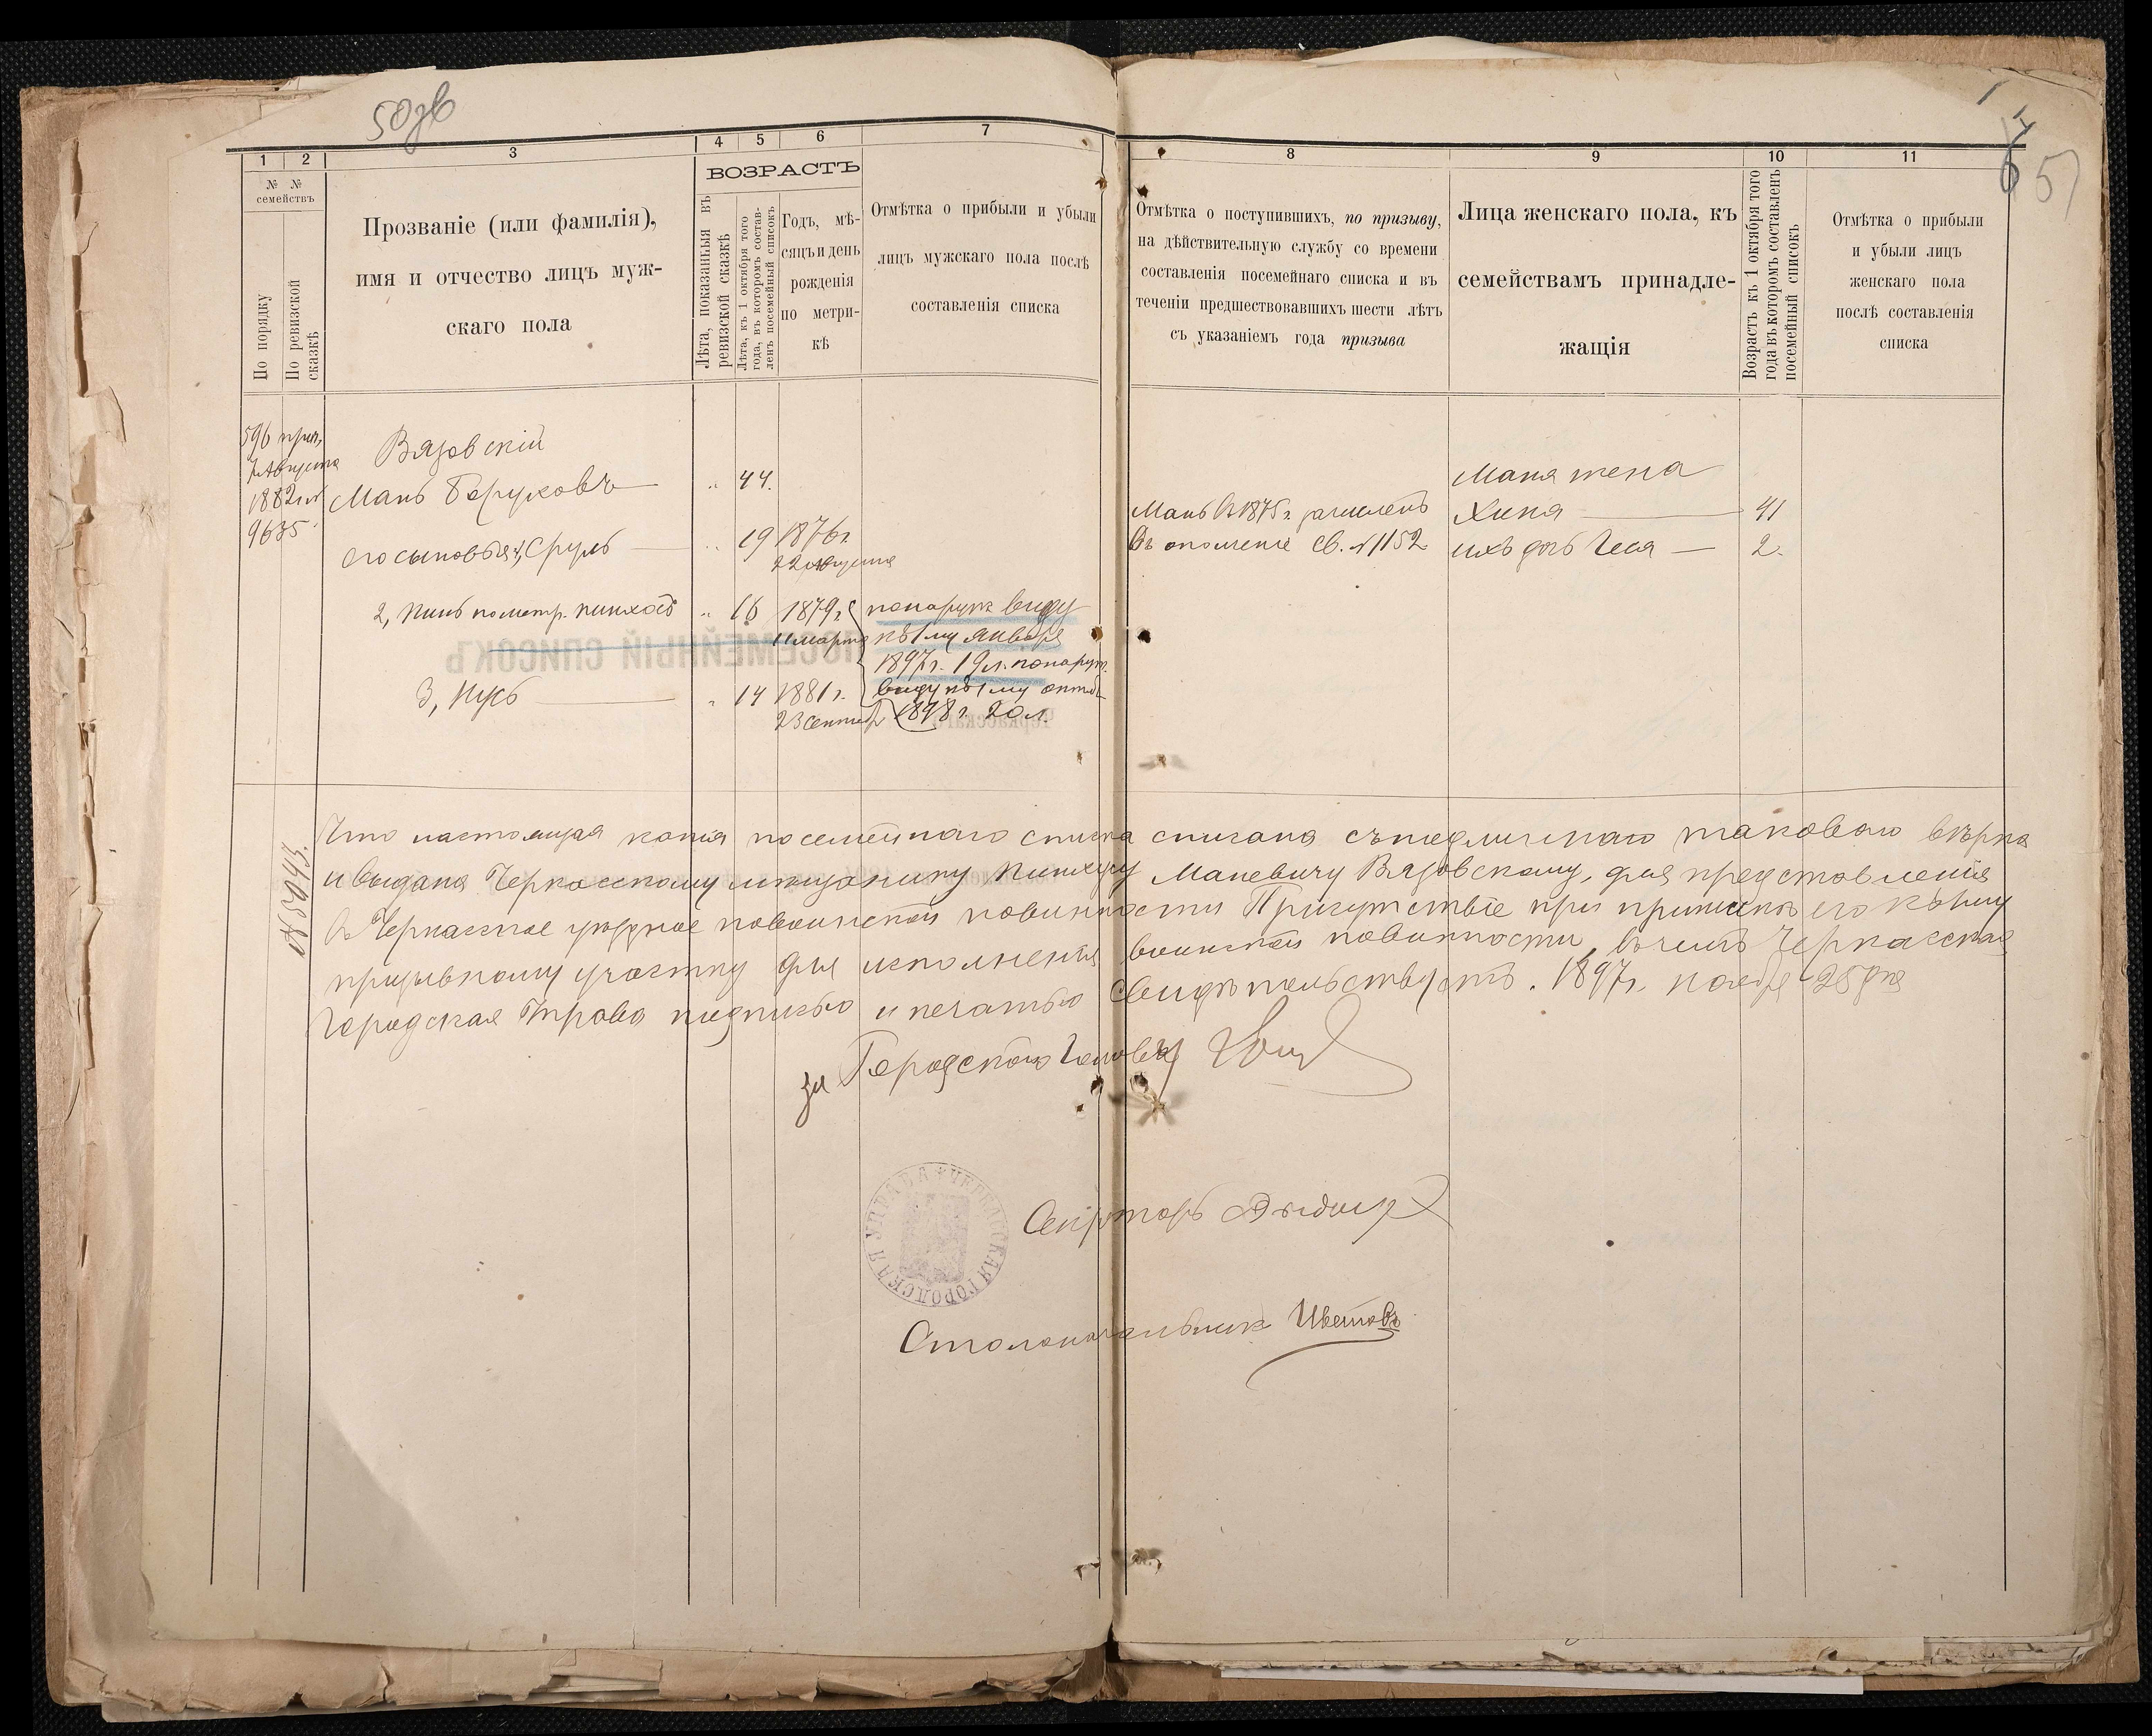 50зв
57
1 2 3 4 5 6 7 8 9 10 11
№ №
семействъ
По порядку
По ревизской
сказкѣ
Прозваніе (или фамилія),
имя и отчество лицъ муж-
скаго пола
ВОЗРАСТЪ
Лѣта, показанныя въ
ревизской сказкѣ
Лѣта, къ 1 октября того
года, въ которомъ состав-
ленъ посемейный списокъ
Годъ, мѣ-
сяцъ и день
рожденія
по метри-
кѣ
Отмѣтка о прибыли и убыли
лицъ мужскаго пола послѣ
составленія списка
Отмѣтка о поступившихъ, по призыву,
на дѣйствительную службу со времени
составленія посемейнаго списка и въ
теченіи предшествовавшихъ шести лѣтъ
съ указаніемъ года призыва
Лица женскаго пола, къ
семействамъ принадле-
жащія
Возрастъ къ 1 октября того
года въ которомъ составленъ
посемейный списокъ
Отмѣтка о прибыли
и убыли лицъ
женскаго пола
послѣ составленія
списка
596 прич.
7 Августа
1882 №
9635
Вязовскій
Мань Боруховъ 44.
его сыновья: 1, Сруль 19 1876 г.
22 августа
2, Пинь по метр. Пинхас 16 1879 г.
11 марта
3, Нусь 14 1881 г.
23 сентяб
по наруж виду
къ 1 му января
1897 г. 19 л. по наруж.
виду къ 1 му октяб
1898 г. 20 л.
Мань въ 1875 г. зачисленъ
въ ополченіе св. № 1152
Маня жена
Хика 41
ихъ дочь Чеся 2.
ПОСЕМЕЙНЫЙ СПИСОКЪ
Черкасскаго
№ 5043.
Что настоящая копія посемейнаго списка списана съ подлиннаго таковаго вѣрна
и выдана Черкасскому мѣщанину Пинхусу Маневичу Вязовскому, для представленія
въ Черкасское уѣздное по воинской повинности Присутствіе при припискѣ его къ
призывному участку для исполненія воинской повинности, въ чемъ Черкасская
Городская Управа подписью и печатью свидѣтельствуетъ. 1897 г. ноября 28 дня
за Городского Головы
ЧЕРКАССКАЯ ГОРОДСКАЯ УПРАВА
Секретарь
Столоначальникъ Цветовъ